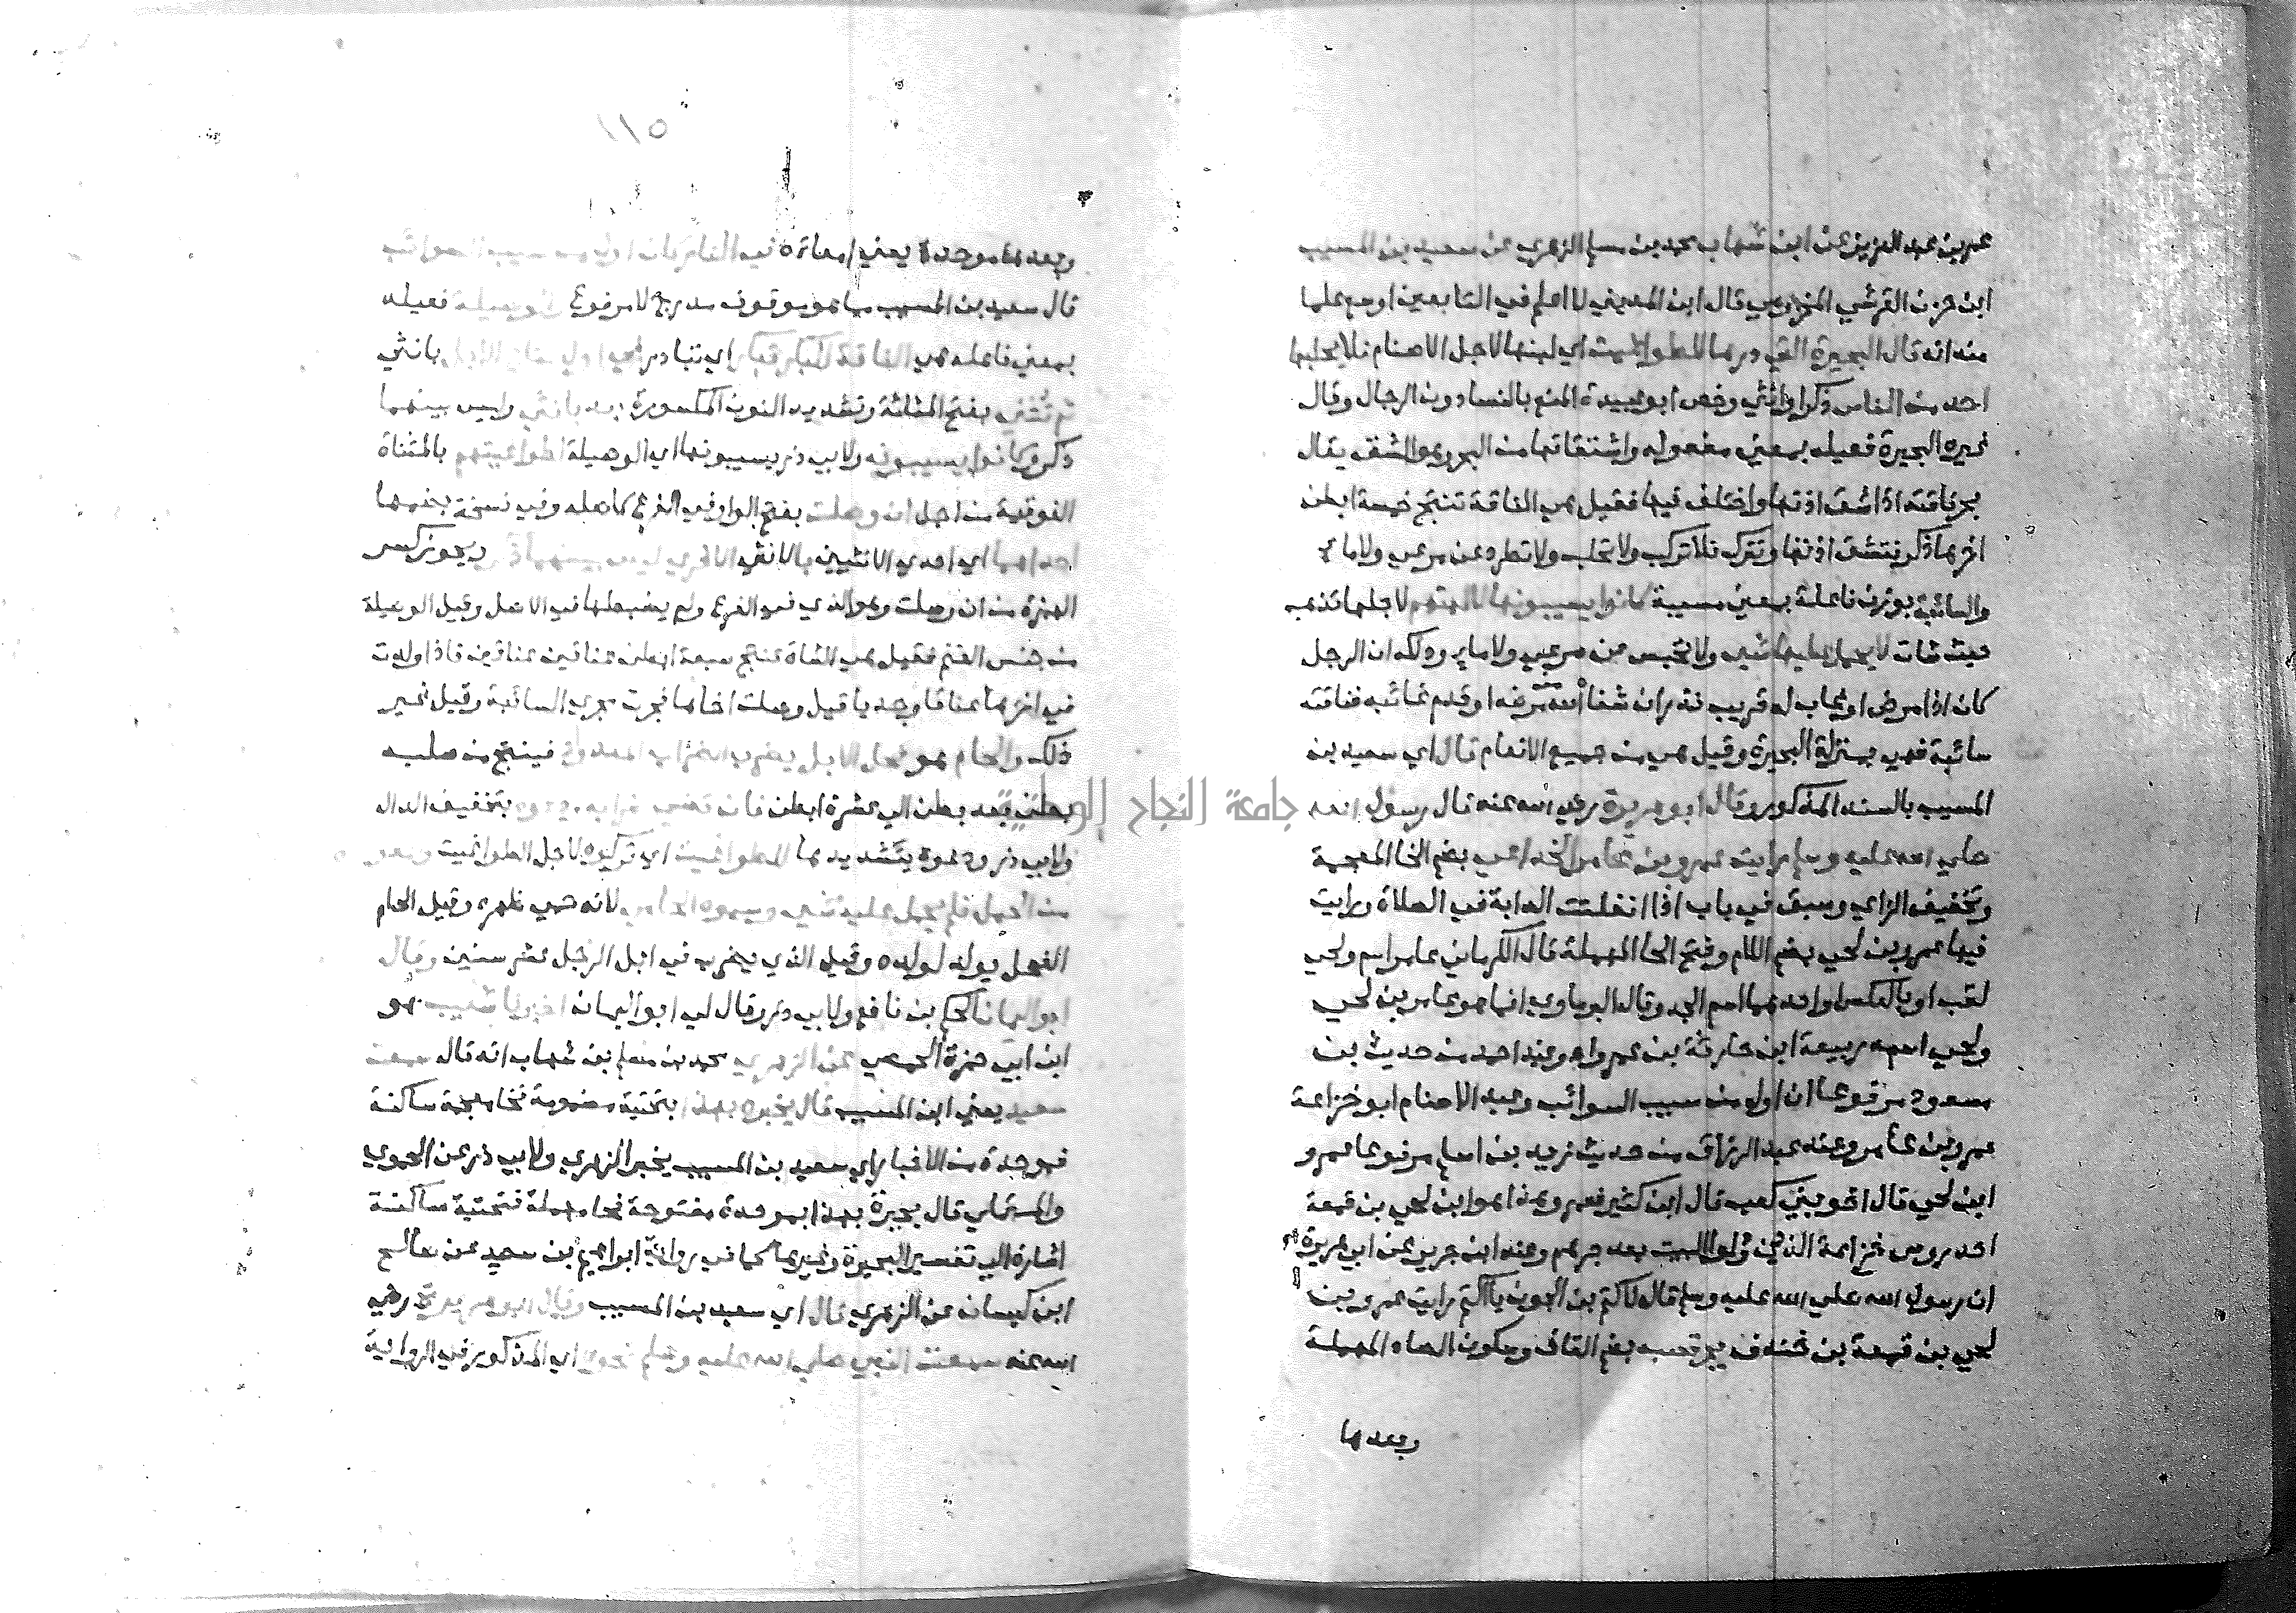 عمر بن عبد العزيز عن ابن شهاب محمد بن مسلم الزهري عن سعيد بن المسيب
ابن حزن القرشي المخزومي قال ابن المديني لا اعلم في التابعين اوسع علما
منه انه قال البحيرة التي درها للطواغيت اي لبنها لاجل الاصنام فلا يحلبها
احد من الناس ذكرا وانثي وخص ابو عبيدة المنع بالنسا دون الرجال وقال
غيره البحيرة فعيله بمعني مفعوله واشتقاقها من البحر وهو الشق يقال
بحر ناقته اذا شق اذنها واختلف فيها فقيل هي الناقة تنتج خمسة ابطن
اخرها ذكر فتشق اذنها وتترك فلا تركب ولا تحلب ولا تطرد عن مرعي ولا ما
والسائبة بوزن فاعلة بمعني مسيبة كانوا يسيبونها لالهتهم لاجلها تذهب
حيث شات لا يحمل عليها شي ولا تحبس عن مرعي ولا ما وذلك ان الرجل
كان اذا مرض او غاب له قريب نذر ان شفا الله مريضه او قدم غائبه فناقته
سائبة فهي بمنزلة البحيرة وقيل هي من جميع الانعام قال اي سعيد بن
المسيب بالسند المذكور وقال ابو هريرة رضي الله عنه قال رسول الله
صلي الله عليه وسلم رايت عمرو بن عامر الخزاعي بضم الخا المعجمة
وتخفيف الزاي وسبق في باب اذا انفلتت الدابة في الصلاة ورايت
فيها عمرو بن لحي بضم اللام وفتح الحا المهملة قال الكرماني عامر اسم ولحي
لقب او بالعكس او احدهما اسم الجد وقال البرماوي انما هو عامر بن لحي
ولحي اسمه ربيعة ابن حارثة بن عمرو وعند احمد من حديث بن
مسعود مرفوعا ان اول من سيب السوائب وعبد الاصنام ابو خزاعة
عمرو بن عامر وعند عبد الرزاق من حديث زيد بن اسلم مرفوعا عمرو
ابن لحي قال اخو بني كعب قال ابن كثير فعمرو هذا هو ابن لحي بن قمعة
احد روسا خزاعة الذين ولوا البيت بعد جرهم وعند ابن جرير عن ابي هريرة
ان رسول الله صلي الله عليه وسلم قال لاكثم بن الجون يا اكثم رايت عمرو بن
لحي بن قمعة بن خندف يجر قصبه بضم القاف وسكون الصاد المهملة
وبعدها
١١٥
وبعدها موحدة يعني امعاءه في النار كان اول من سيب السوائب
قال سعيد بن المسيب مما هو موقوف مدرج لا مرفوع والوصيلة فعيله
بمعني فاعله هي الناقة البكر تبكر اي تبادر في اول نتاج الابل بانثي
ثم تثني بفتح المثلثة وتشديد النون المكسورة بعد بانثي وليس بينهما
ذكر وكانوا يسيبونه ولابي ذر يسيبونها اي الوصيلة لطواغيتهم بالمثناة
الفوقية من اجل ان وصلت بفتح الواو في الفرع كاصله وفي نسخة بضمها
احداهما اي احدي الانثيين بالانثي الاخري ليس بينهما ذكر ويجوز كسر
الهمزة من ان وصلت وهو الذي في الفرع ولم يضبطها في الاصل وقيل الوصيلة
من جنس الغنم فقيل هي الشاة تنتج سبعة ابطن عناقين عناقين فاذا ولدت
في اخرها عناقا وجديا قيل وصلت اخاها فجرت مجري السائبة وقيل غير
ذلك والحام هو فحل الابل يضرب الضراب المعدود فينتج من صلبه
بطن بعد بطن الي عشرة ابطن فاذا قضي ضرابه ودعوه بتخفيف الدال
ولابي ذر ودعوه بتشديدها للطواغيت اي تركوه لاجل الطواغيت واعفوه
من الحمل فلم يحمل عليه شي وسموه الحامي لانه حمي ظهره وقيل الحام
الفحل يولد لولده وقيل الذي يضرب في ابل الرجل عشر سنين وقال
ابو اليمان الحكم بن نافع ولابي ذر وقال لي ابو اليمان اخبرنا شعيب هو
ابن ابي حمزة الحمصي عن الزهري محمد بن مسلم بن شهاب انه قال سمعت
سعيد يعني ابن المسيب قال يخبره بهذا بتحتية مضمومة فخا معجمة ساكنة
فموحدة من الاخبار اي سعيد بن المسيب يخبر الزهري ولابي ذر عن الحموي
والمستملي قال بحيرة بهذا بموحدة مفتوحة فحا مهملة فتحتية ساكنة
اشارة الي تفسير البحيرة وغيرها كما في رواية ابراهيم بن سعد عن صالح
ابن كيسان عن الزهري قال اي سعيد بن المسيب وقال ابو هريرة رضي
الله عنه سمعت النبي صلي الله عليه وسلم نحوه اي المذكور في الرواية
جامعة النجاح الوطنية